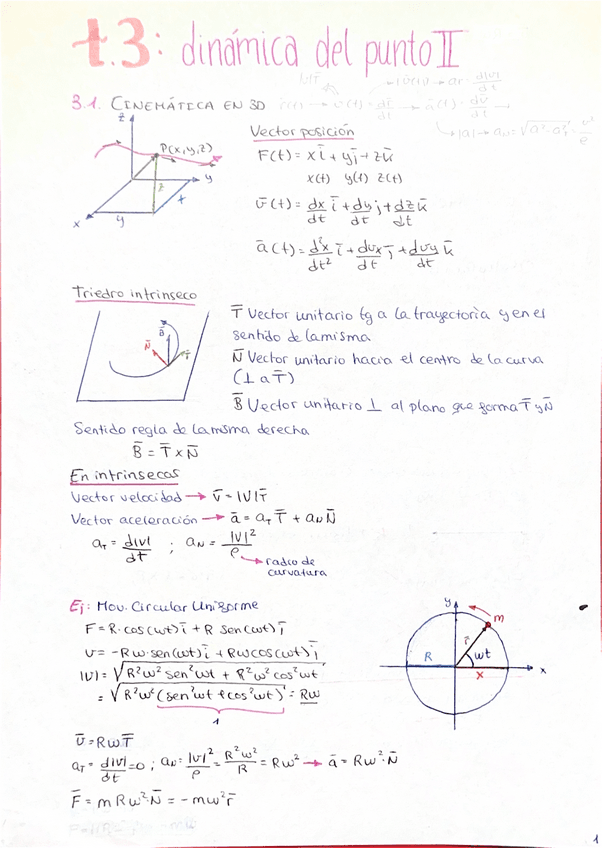 t.3: dinámica del punto II
3.1. CINEMÁTICA EN 3D
z
P(x,y,z)
y
z
x
x
y
Vector posición
r̄(t) = x ī + y j̄ + z k̄
x(t) y(t) z(t)
v̄(t) = dx/dt ī + dy/dt j + dz/dt k̄
ā(t) = d²x/dt² ī + dvx/dt j̄ + dvy/dt k̄
Triedro intrinseco
B̄
N̄
T̄
T̄ Vector unitario tg a la trayectoria y en el
sentido de la misma
N̄ Vector unitario hacia el centro de la curva
(⊥ a T̄)
B̄ Vector unitario ⊥ al plano que forma T̄ y N̄
Sentido regla de la misma derecha
B̄ = T̄ x N̄
En intrinsecas
Vector velocidad → v̄ = |V|T̄
Vector aceleración → ā = aT T̄ + aN N̄
aT = d|v|/dt ; aN = |V|²/ρ → radio de
curvatura
Ej: Mov. Circular Uniforme
r̄ = R·cos(wt) ī + R sen(wt) j̄
v = -Rw·sen(wt) ī + Rw cos(wt) j̄
|v| = √R²w² sen²wt + R²w² cos²wt
= √R²w² (sen²wt + cos²wt) = Rw
1
y
m
r̄
R
wt
x
x
v̄ = Rw T̄
aT = d|v|/dt = 0 ; aN = |v|²/ρ = R²w²/R = Rw² → ā = Rw²·N̄
F̄ = m Rw²·N̄ = -mw² r̄
1